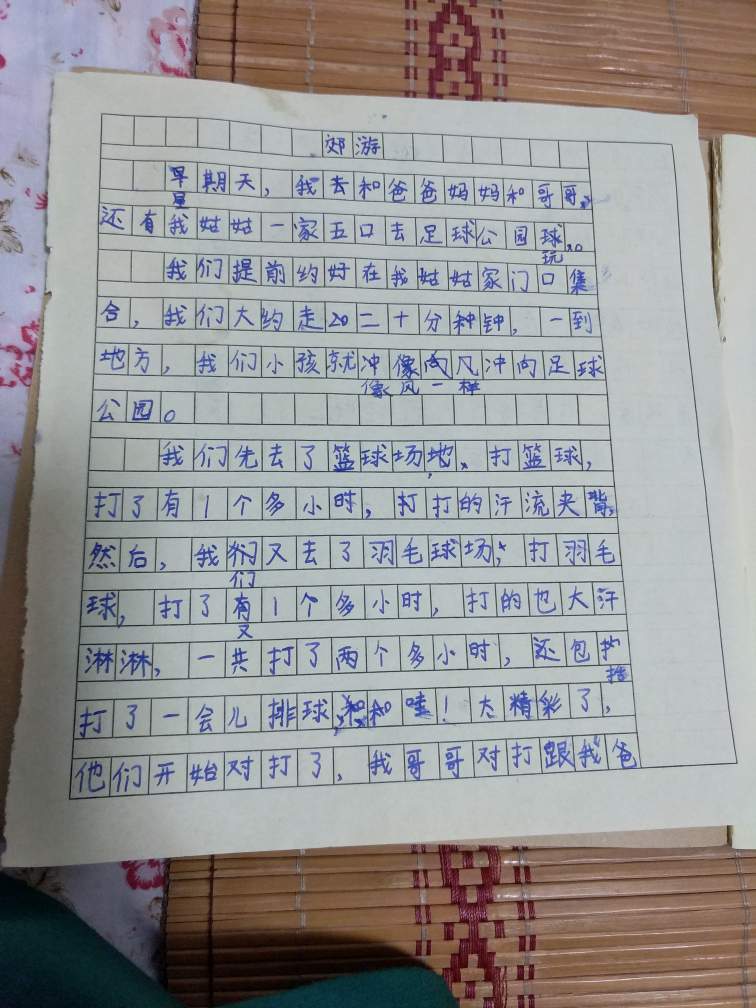 郊游
早期天，我去和爸爸妈妈和哥哥，
星
还有我姑姑一家五口去足球公园球。
玩
我们提前约好在我姑姑家门口集
合，我们大约走20二十分种钟，一到
地方，我们小孩就冲像向风冲向足球
像风一样
公园。
我们先去了篮球场地、打篮球，
打了有1个多小时，打打的汗流夹背，
然后，我们又去了羽毛球场，打羽毛
们
球，打了有1个多小时，打的也大汗
又
淋淋，一共打了两个多小时，还包护
括
打了一会儿排球，和哇！太精彩了，
他们开始对打了，我哥哥对打跟我爸